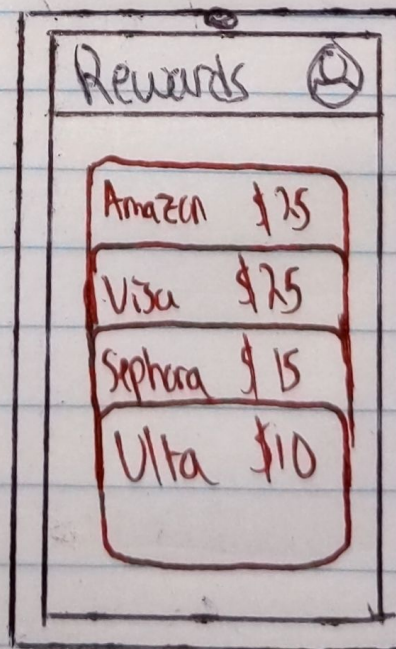 Rewards
Amazon $25
Visa $25
Sephora $15
Ulta $10